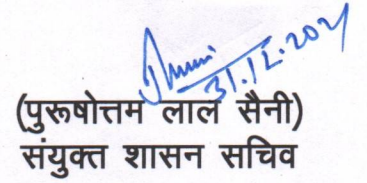 31.12.2021
(पुरूषोत्तम लाल सैनी)
संयुक्त शासन सचिव